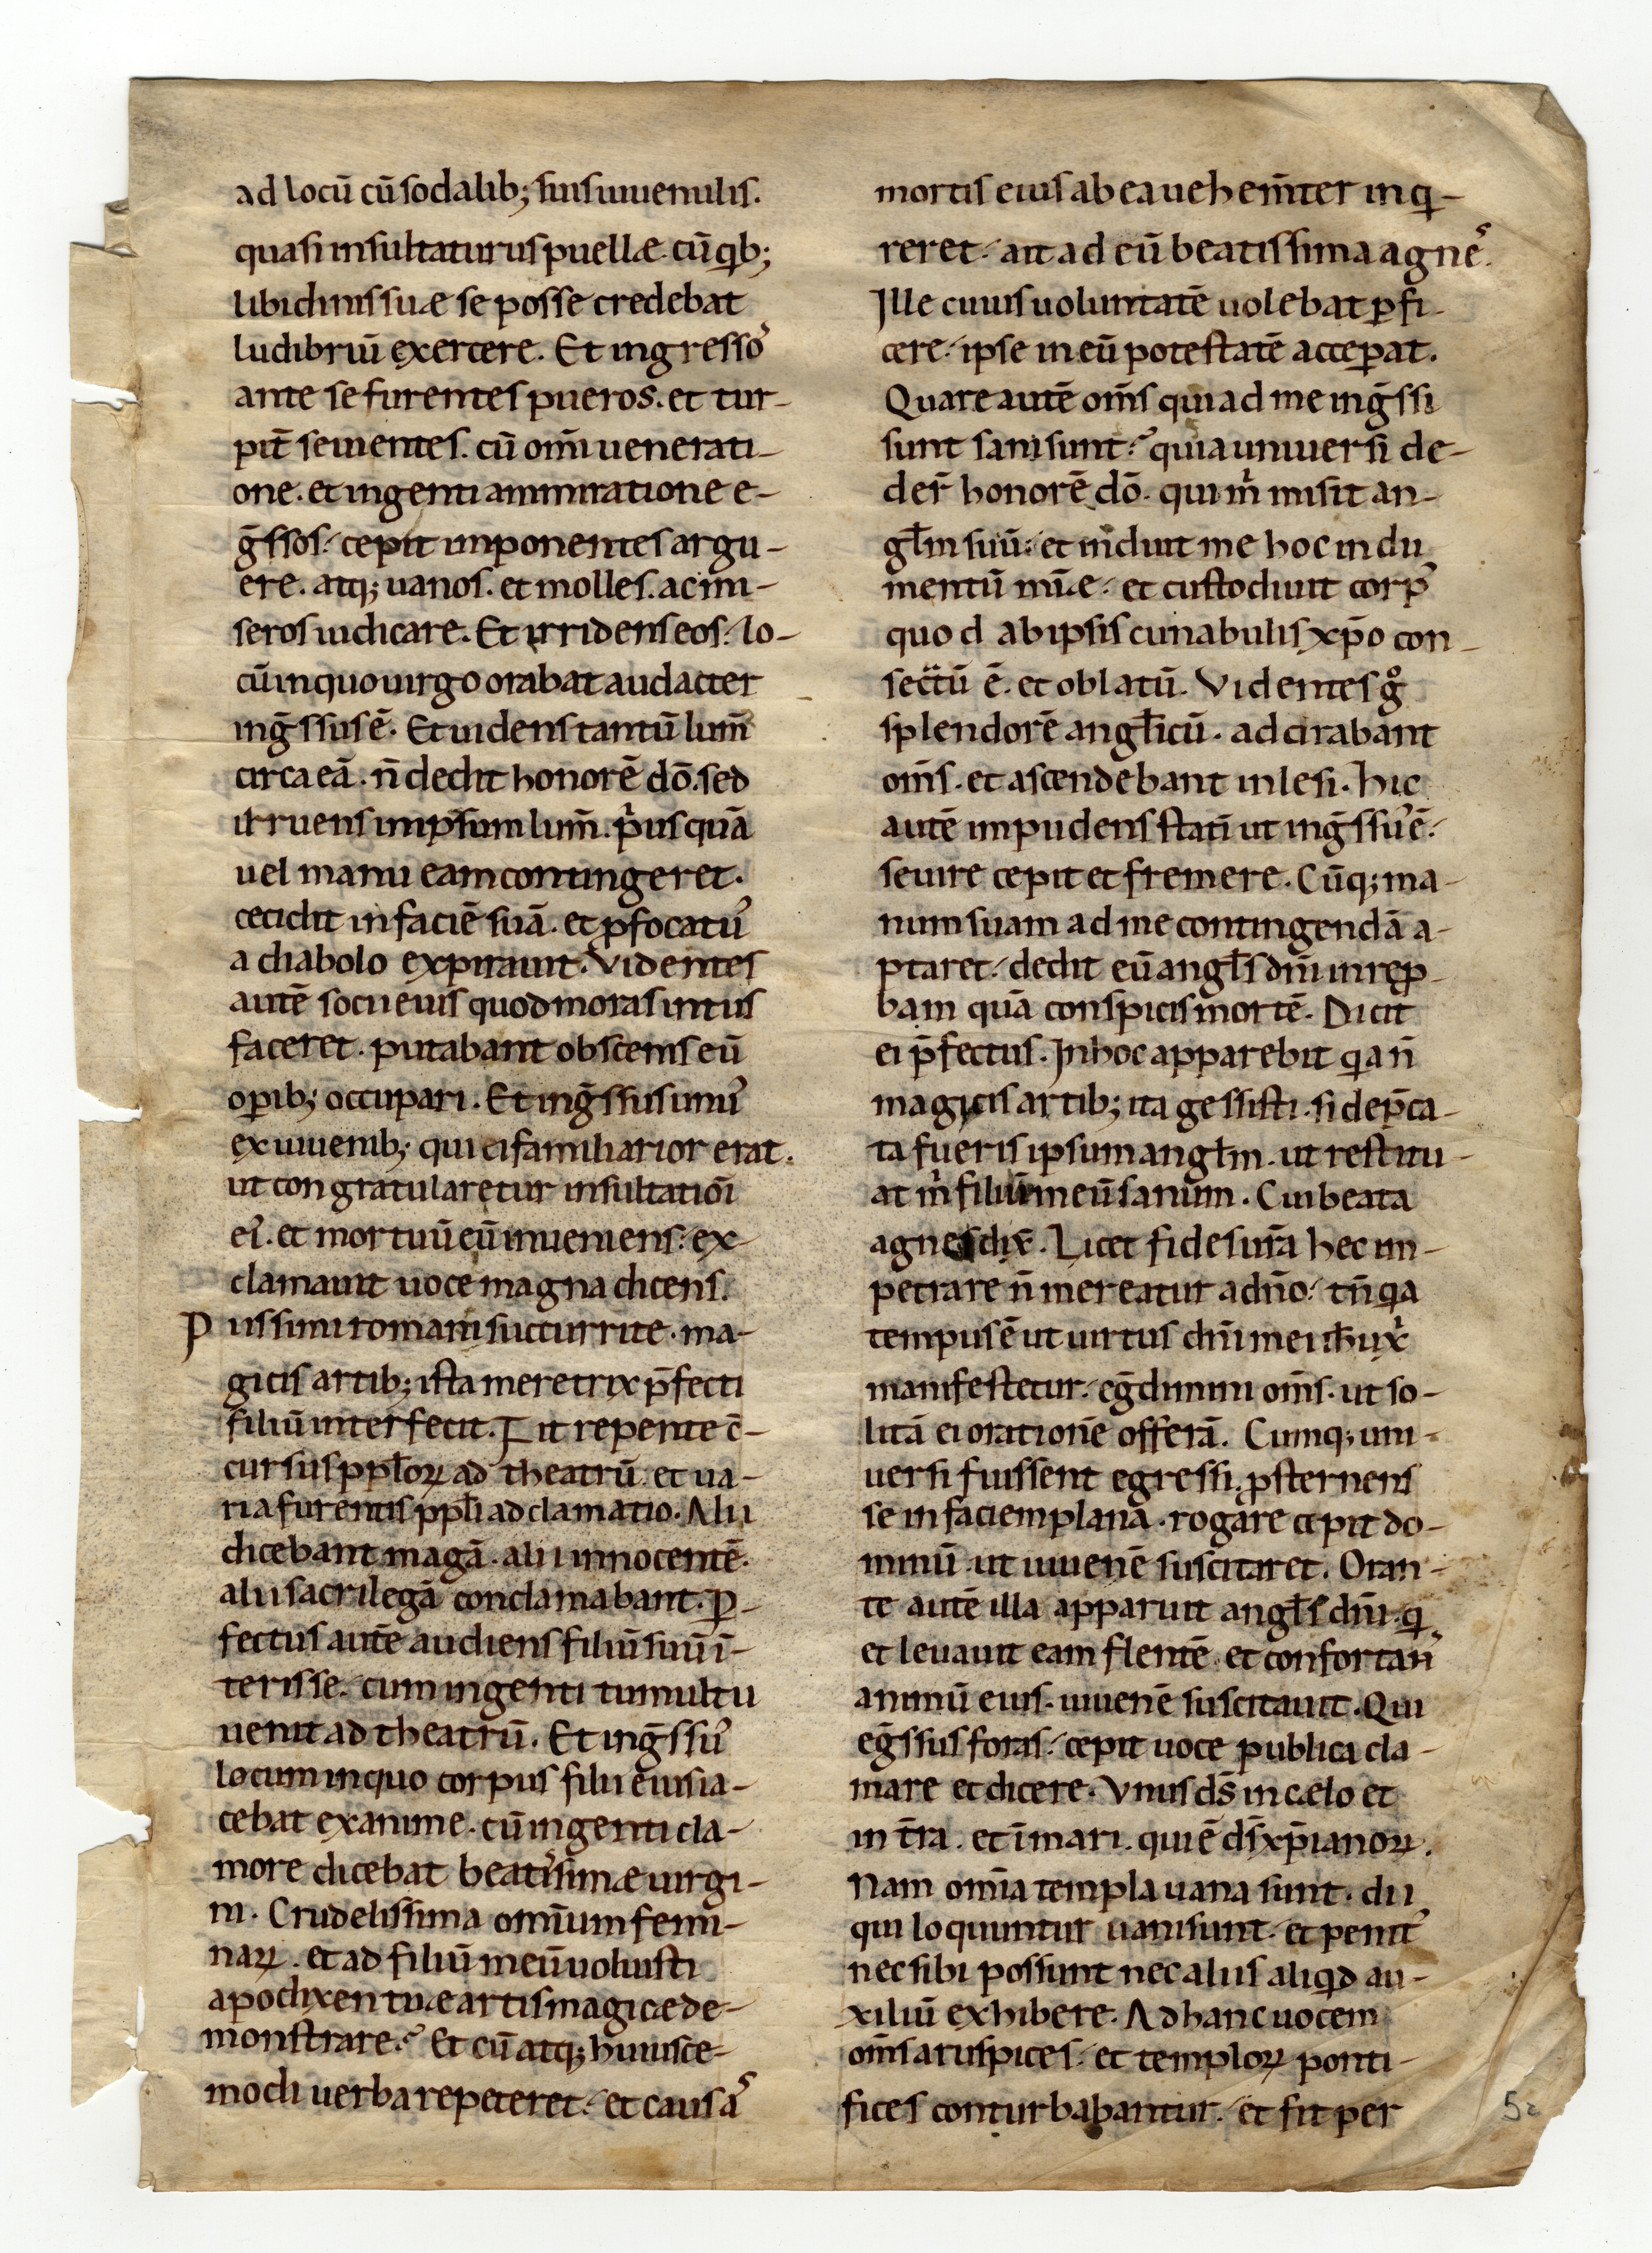 ad locū cū sodalib; suis iuuenulis.
quasi insultaturus puellæ. cū qib;
libidinis suæ se posse credebat
ludibriū exercere. Et ingresso᾽
ante se furentes pueros. et tur-
pit̄ seuientes. cū om̄i uenerati-
one. et ingenti ammiratione e-
ḡssos. cepit inponentes argu-
ere. atq; uanos. et molles. ac mi-
seros iudicare. Et irridens eos. lo-
cū in quo uirgo orabat audacter
inḡssus ē. Et uidens tantū lum̄
circa eā. n̄ dedit honorē dō. sed
irruens in ipsum lum̄. p̓us quā
uel manu eam contingeret.
cecidit in faciē suā. et p̄focatu᾽
a diabolo expirauit. Videntes
autē socii eius quod moras intus
faceret. putabant obscenis eū
oꝑib; occupari. Et inḡssus unu᾽
ex iuuenib; qui ei familiarior erat.
ut congratularetur insultatiōi
ei᾽. et mortuū eū inueniens. ex-
clamauit uoce magna dicens.
Piissimi romani succurrite. ma-
gicis artib; ista meretrix p̄fecti
filiū interfecit. Fit repente c̄-
cursus ppl̄oꝝ ad theatrū. et ua-
ria furentis ppl̄i adclamatio. Alii
dicebant magā. alii innocentē.
alii sacrilegā conclamabant. P̄-
fectus autē audiens filiū suū ī-
terisse. cum ingenti tumultu
uenit ad theatrū. Et inḡssu᾽
locum in quo corpus filii eius ia-
cebat exanime. cū ingenti cla-
more dicebat beatissimæ uirgi-
ni. Crudelissima omnium femi-
naꝝ. et ad filiū meū uoluisti
apodixen tuæ artis magicæ de-
monstrare? Et cū atq; huiusce-
modi uerba repeteret. et causā᾽
mortis eius ab ea uehem̄ter inqi-
reret. ait ad eū beatissima agnes.
Ille cuius uoluntatē uolebat ꝑfi-
cere. ipse in eū potestatē acceꝑat.
Quare autē om̄s qui ad me inḡssi
sunt sani sunt? quia uniuersi de-
der̄ honorē dō. qui m̓ misit an-
gl̄m suū. et induit me hoc indu
mentū mīæ. et custodiuit corp᾽
quod ab ipsis cunabulis xp̄o con-
secr̄tū ē. et oblatū. Videntes gͦ
splendorē angl̄icū. adorabant
om̄s. et ascendebant inlesi. Hic
autē impudens stati̅ ut inḡssu᾽ ē.
seuire cepit et fremere. Cūq; ma-
num suam ad me contingendā a-
ptaret. dedit eū angl̄s dn̄i in rep̱-
bam quā conspicis mortē. Dicit
ei p̄fectus. In hoc apparebit qia n̄
magicis artib; ita gessisti. si dep̄ca-
ta fueris ipsum angl̄m. ut restitu-
at m̓ filiū meū sanum. Cui beata
agnes dix̄. Licet fides ur̄a hec im-
petrare n̄ mereatur a dn̄o. tn̄ qia
tempus ē ut uirtus dn̄i mei ih̄u xp̓i
manifestetur. eḡdimini om̄s. ut so-
litā ei orationē offerā. Cumq; uni-
uersi fuissent egressi. ꝓsternens
se in faciem planā. rogare cepit do-
minū. ut iuuenē suscitaret. Oran-
te autē illa apparuit angl̄s dn̄i. qi
et leuauit eam flentē. et confortan᾽
animū eius. iuuenē suscitauit. Qui
eḡssus foras. cepit uoce publica cla-
mare et dicere. Vnus ds̄ in cælo et
in t̄ra. et ī mari. qui ē ds̄ xp̄ianoꝝ.
Nam om̄ia templa uana sunt. dii
qui loquuntur uani sunt. et penit᾽
nec sibi possunt nec aliis aliqid au-
xiliū exhibere. Ad hanc uocem
om̄s aruspices. et temploꝝ ponti-
fices conturbabantur. et fit per